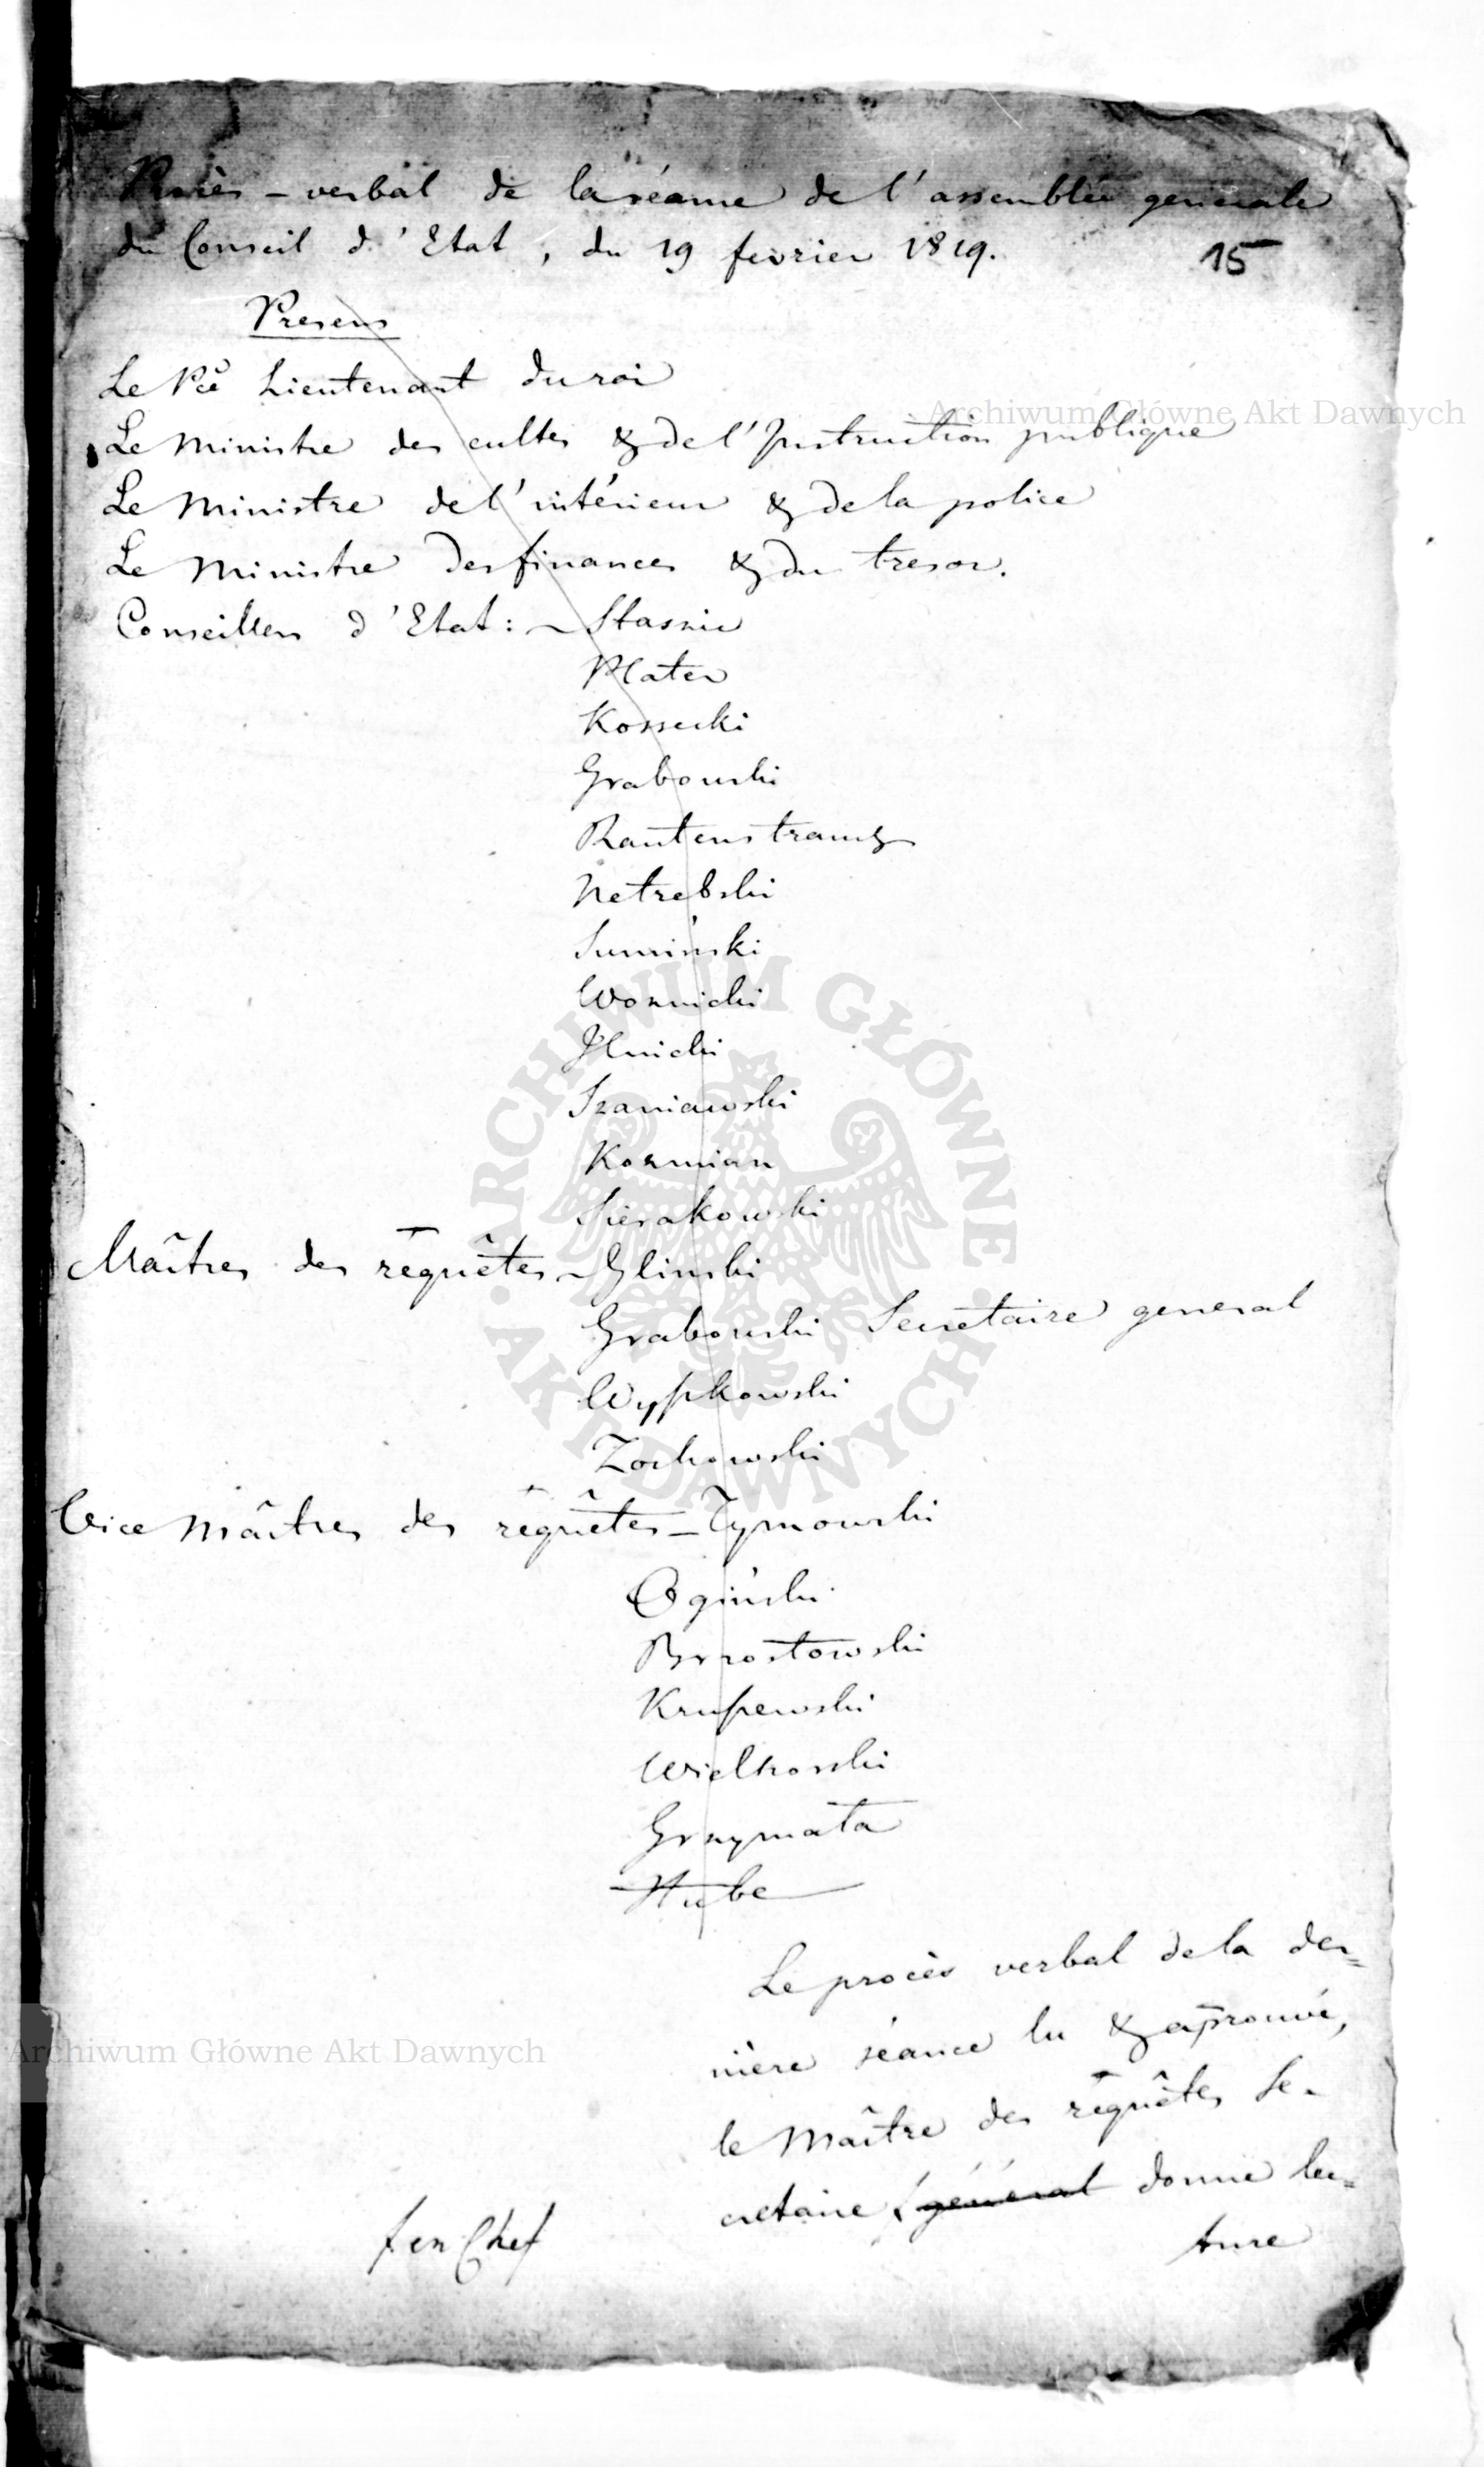 Procès-verbal de la séance de l'assemblée generale
du Conseil d'Etat, du 19 fevrier 1819.
15
Presens
Le Pce Lieutenant du roi
Archiwum Główne Akt Dawnych
Le Ministre des cultes & de l'Instruction publique
Le Ministre de l'intérieur & de la police
Le Ministre des finances & du tresor.
Conseillers d'Etat: - Staszic
Plater
Kossecki
Grabowski
Rautenstrauch
Netrebski
Sumiński
Woznicki
Ilnicki
Szaniawski
Kozmian
Sierakowski
Maîtres des réquêtes - Glinski
Grabowski Secretaire general
Wyszkowski
Zochowski
Vice Maîtres des réquêtes - Tymowski
Ogiński
Brzostowski
Kruszewski
Wielhorski
Grzymała
Hube
ARCHIWUM GŁÓWNE AKT DAWNYCH
Le procès verbal de la der=
nière séance lu & aprouvé,
Archiwum Główne Akt Dawnych
le Maître des réquêtes Se-
cretaire général donne lec=
ture
f en Chef